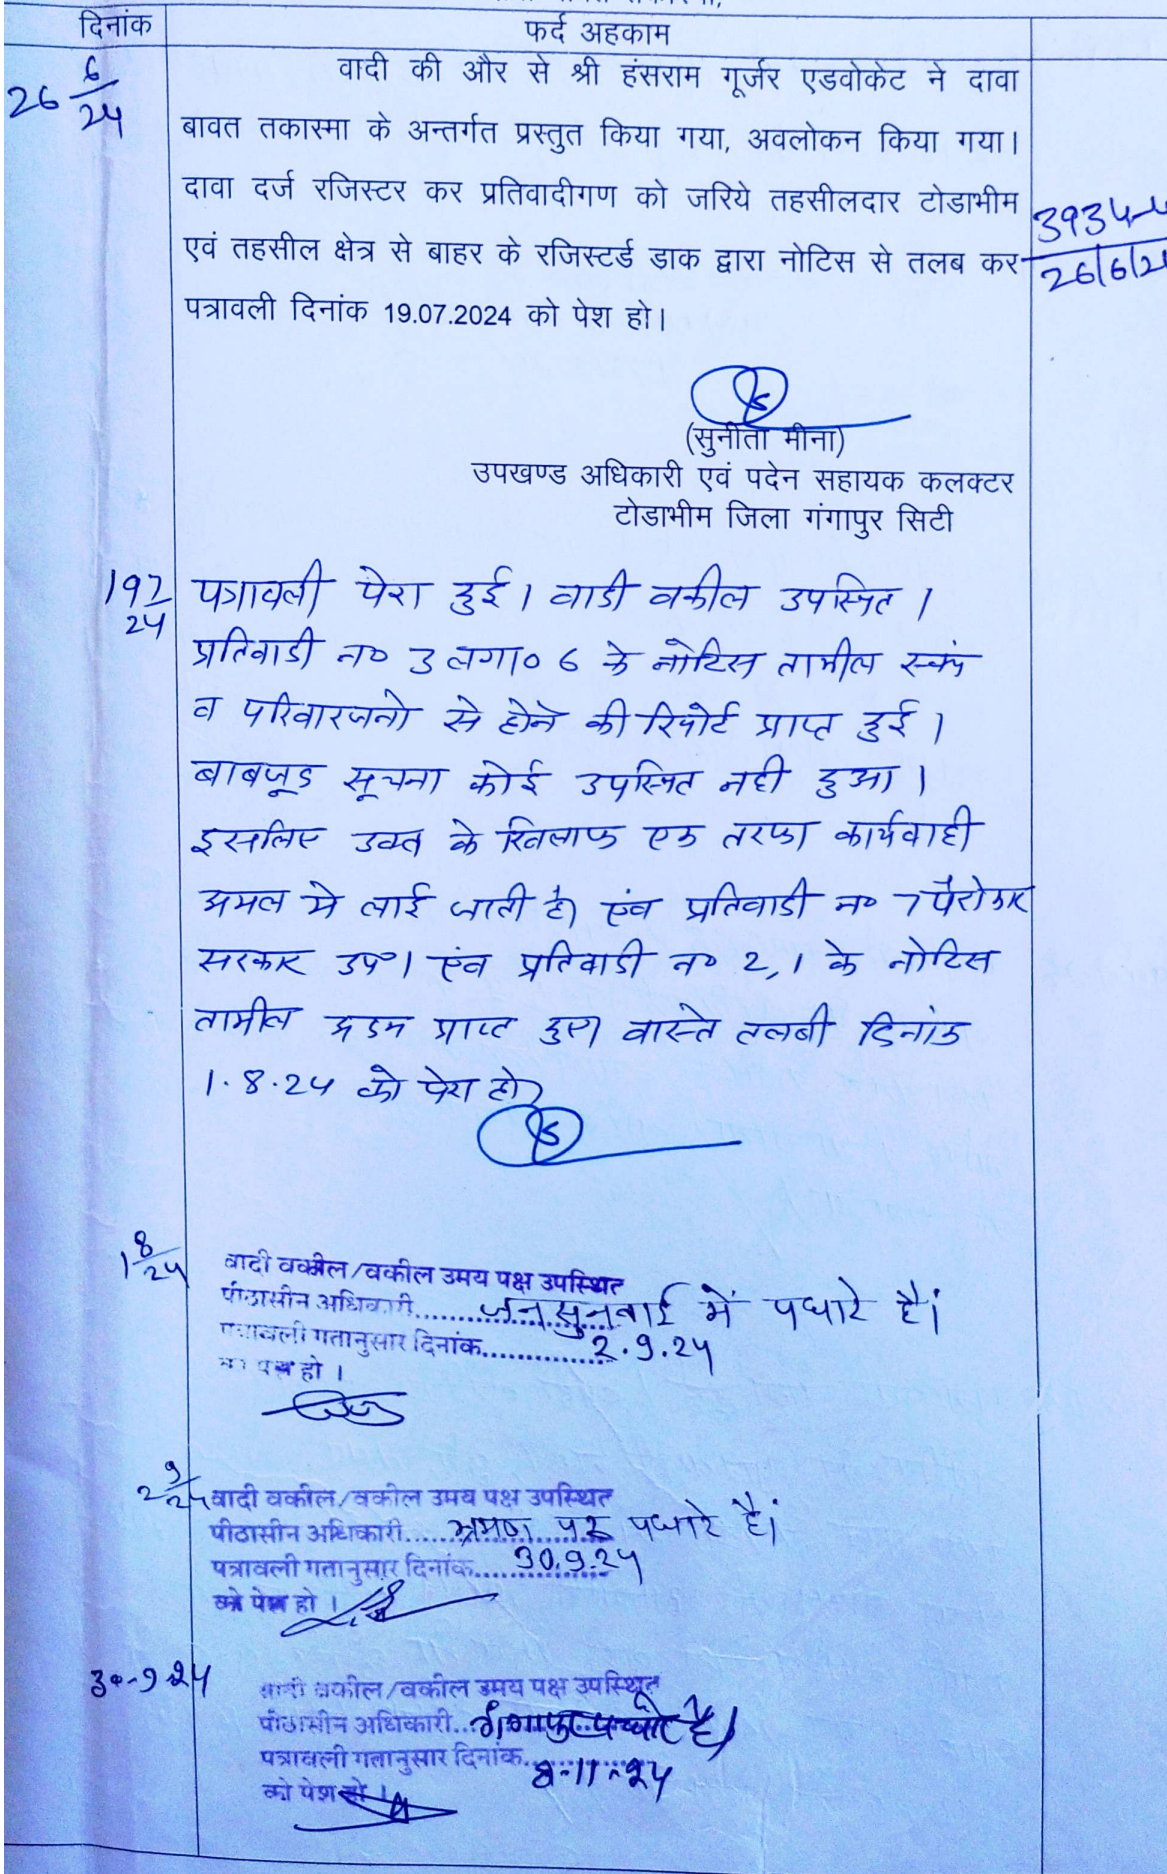 दिनांक
फर्द अहकाम
26 6/24
वादी की और से श्री हंसराम गूर्जर एडवोकेट ने दावा
बावत तकास्मा के अन्तर्गत प्रस्तुत किया गया, अवलोकन किया गया।
दावा दर्ज रजिस्टर कर प्रतिवादीगण को जरिये तहसीलदार टोडाभीम
एवं तहसील क्षेत्र से बाहर के रजिस्टर्ड डाक द्वारा नोटिस से तलब कर
पत्रावली दिनांक 19.07.2024 को पेश हो।
3934
26/6/2
(सुनीता मीना)
उपखण्ड अधिकारी एवं पदेन सहायक कलक्टर
टोडाभीम जिला गंगापुर सिटी
19 7/24
पत्रावली पेश हुई। वादी वकील उपस्थित।
प्रतिवादी न० 3 लगा० 6 के नोटिस तामील स्वयं
व परिवारजनो से होने की रिपोर्ट प्राप्त हुई।
बाबजूद सूचना कोई उपस्थित नही हुआ।
इसलिए उक्त के खिलाफ एक तरफा कार्यवाही
अमल मे लाई जाती है। एंव प्रतिवादी न० 7 पैरोकार
सरकार उप०। एंव प्रतिवादी न० 2,1 के नोटिस
तामील अदम प्राप्त हुए। वास्ते तलबी दिनांक
1.8.24 को पेश हो।
1 8/24
वादी वकील/वकील उमय पक्ष उपस्थित
पीठासीन अधिकारी.....जनसुनवाई में पधारे है।
पत्रावली गतानुसार दिनांक.....2.9.24
को पेश हो।
2 9/24
वादी वकील/वकील उमय पक्ष उपस्थित
पीठासीन अधिकारी.....भ्रमण पर पधारे है।
पत्रावली गतानुसार दिनांक.....30.9.24
को पेश हो।
30-9-24
वादी वकील/वकील उमय पक्ष उपस्थित
पीठासीन अधिकारी...गंगापुर पधारे है।
पत्रावली गतानुसार दिनांक.....8-11-24
को पेश हो।